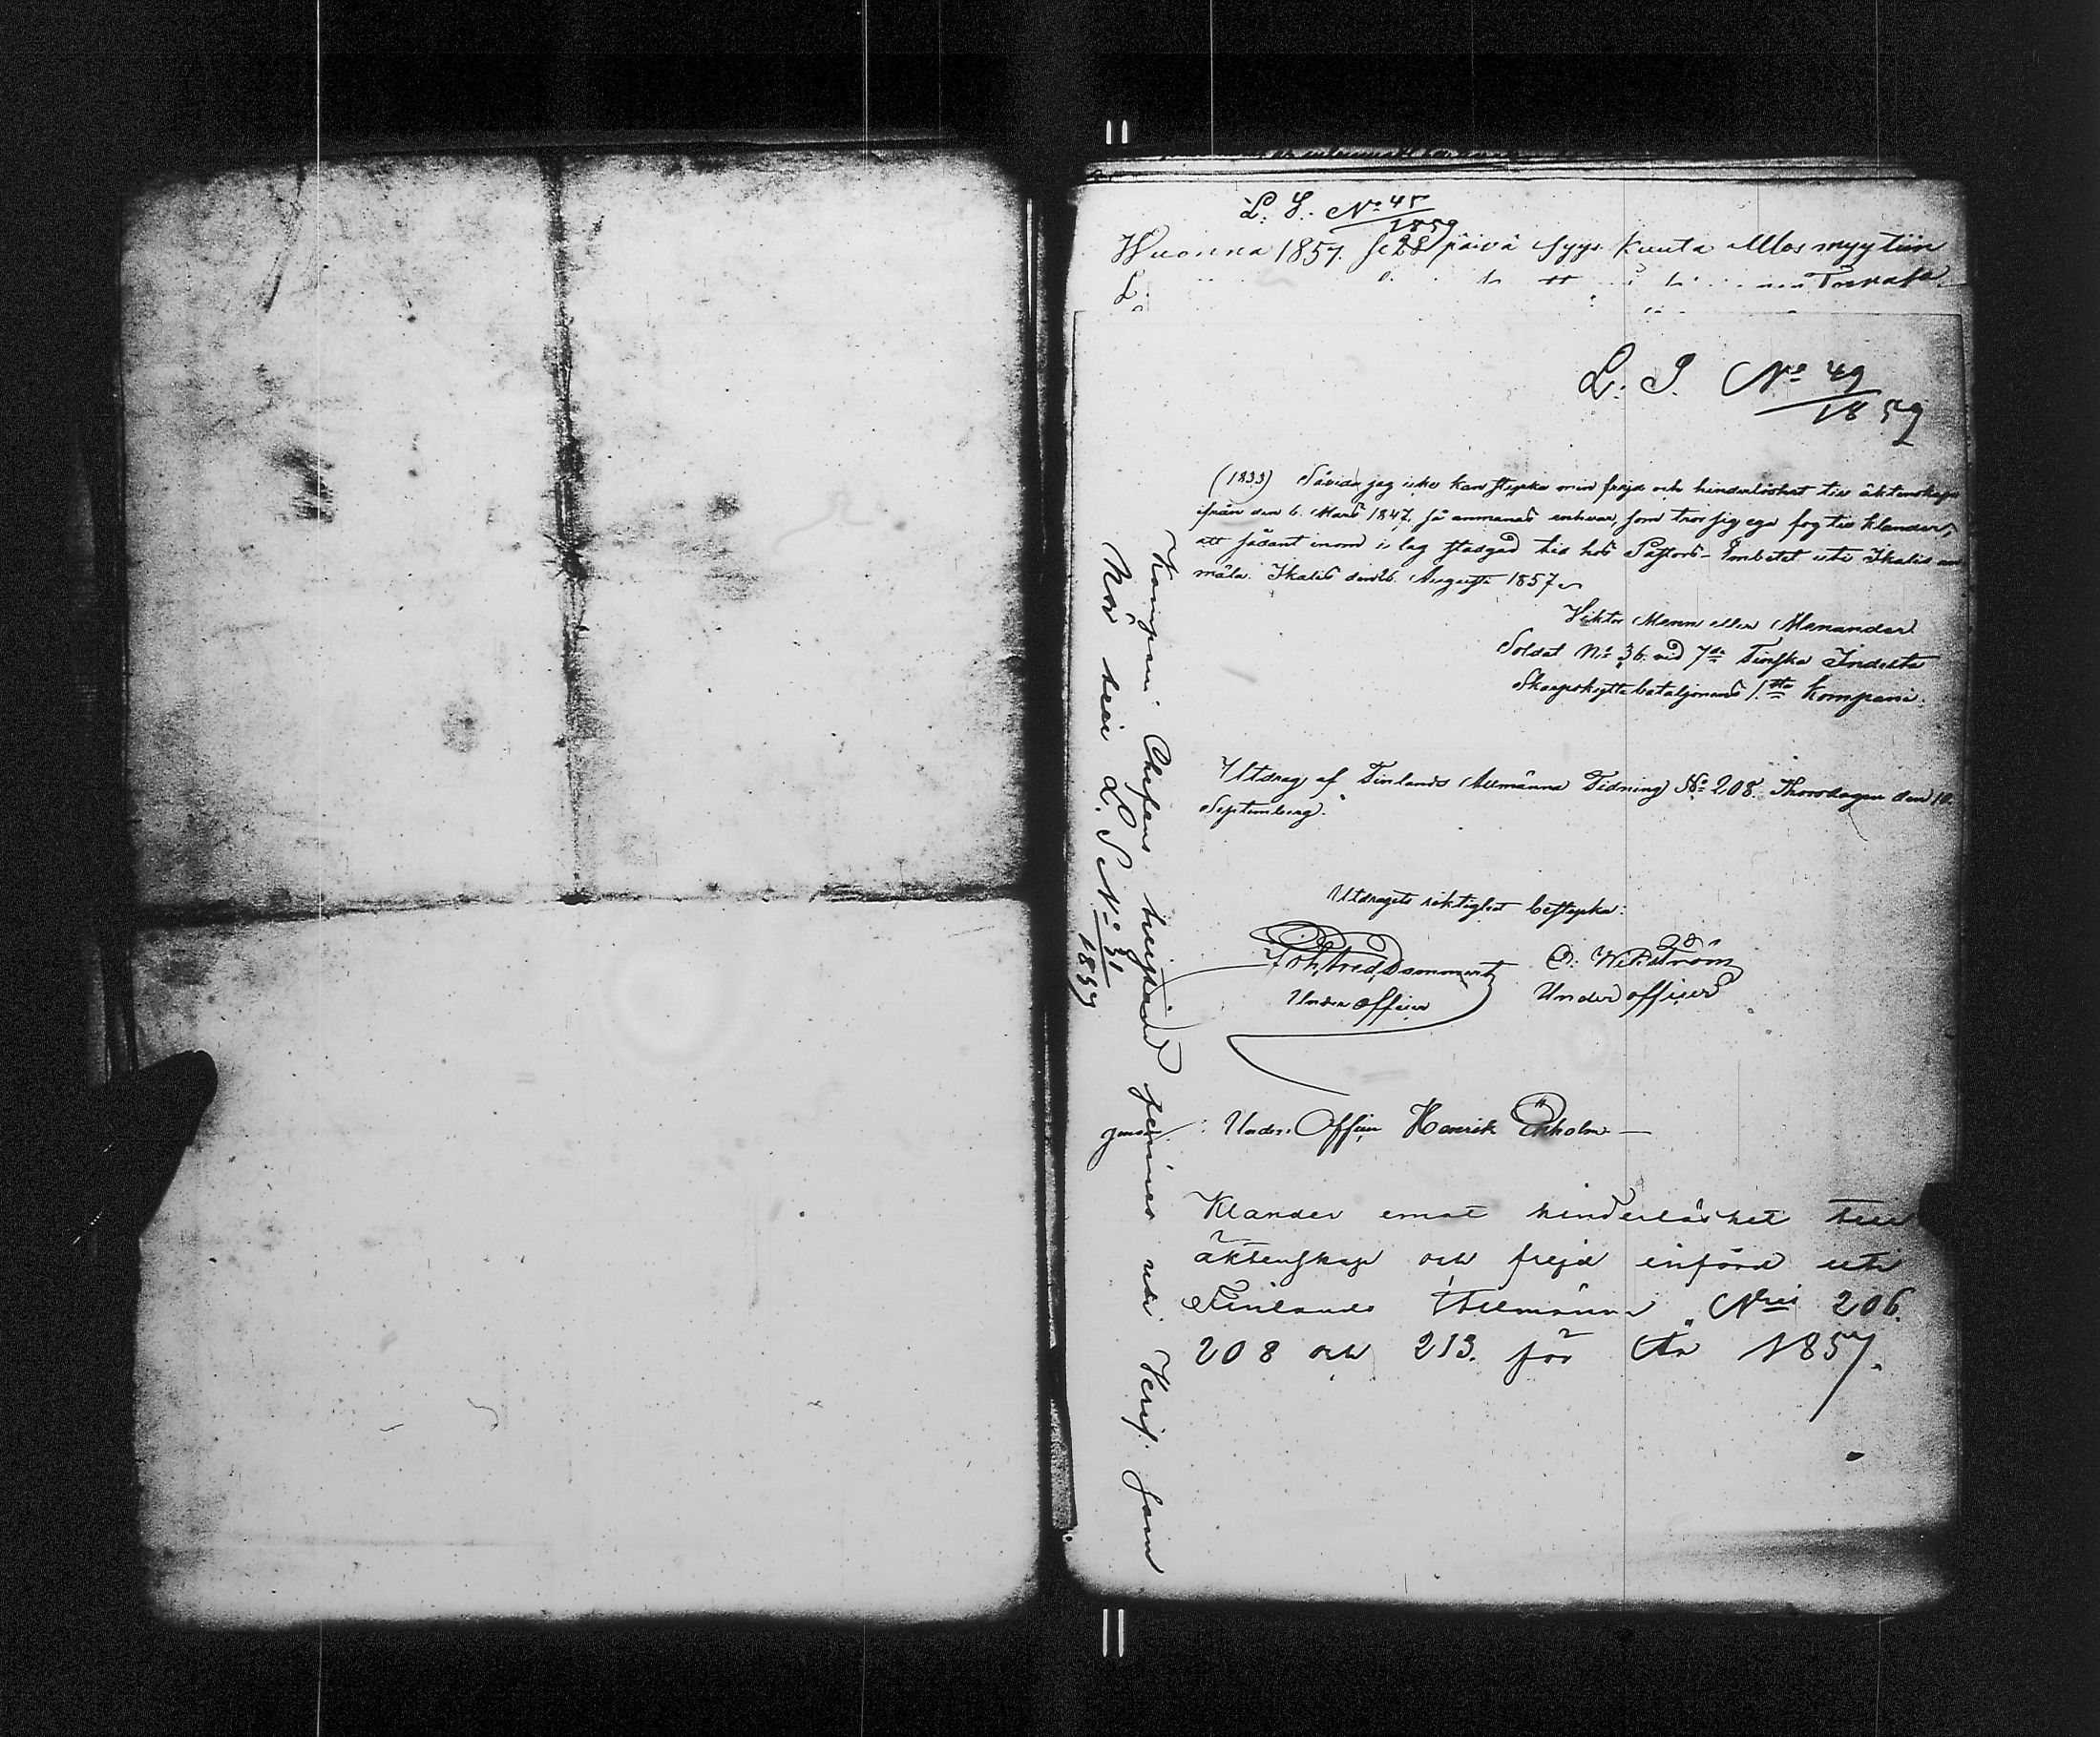 L. S. No 45
1859
Wuonna 1857. se 28 päivä Syys kuuta Ulos myytiin
L. S. No 49
1859
(1833) Såvida jag icke kan styrka min frejd och hinderlöshet till äktenskap
ifrån den 6. Mars 1847, så anmanas enhvar, som tror sig ega fog till klander,
att sådant inom i lag stadgad tid hos Pastors-Embetet uti Ikalis an
mäla. Ikalis den 26. Augusti 1857.
Viktor Menn eller Menander.
Soldat No 36. vid 7de Finska Indelta
Skarpskyttebataljonens 1sta Kompani.
Utdrag af Finlands Allmänna Tidning No 208. Thorsdagen den 10.
September.
Utdragets riktighet bestyrka:
Joh. Fred. Dammert
Under Officer
O. Wikström
Under officer
Under Officer Henrik Ekholm
Klander emot hinderlöshet till
äktenskap och frejd införd uti
Finlands Allmänna Nris 206.
208 och 213. för År 1857.
Kompani Chefens finnes uti Verif. som
hör till L. S. No 31
1859